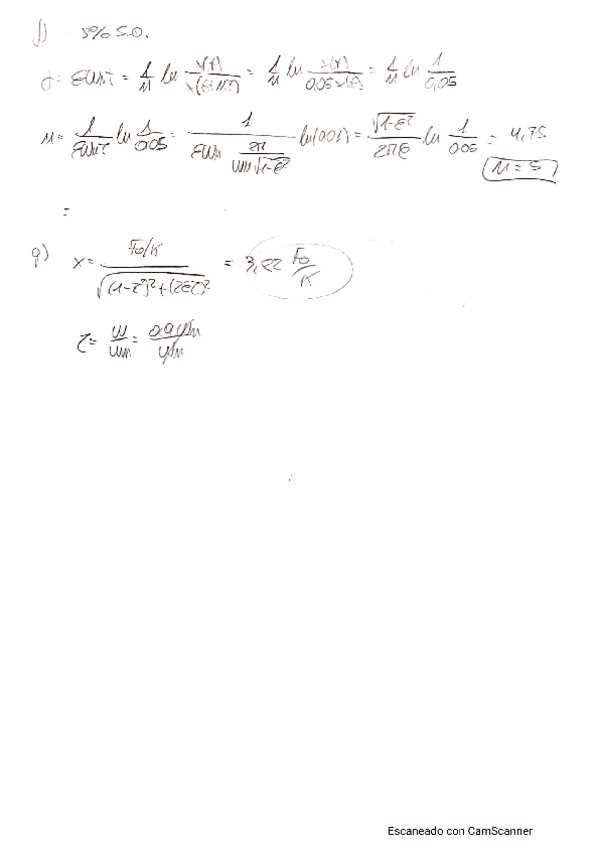 f) 5% S.O.
σ = εωnτ = 1/n ln x(t)/x(t+nτ) = 1/n ln x(t)/0,05x(t) = 1/n ln 1/0,05
n = 1/εωnτ ln 1/0.05 = 1/(εωn 2π/(ωn√1-ε²)) ln(0.05) = √1-ε²/2πε ln 1/0.05 = 4,75
n = 5
=
g) x = Fo/K / √(1-τ²)²+(2ετ)² = 3,22 Fo/K
τ = ω/ωn = 0.9ωn/ωn
Escaneado con CamScanner